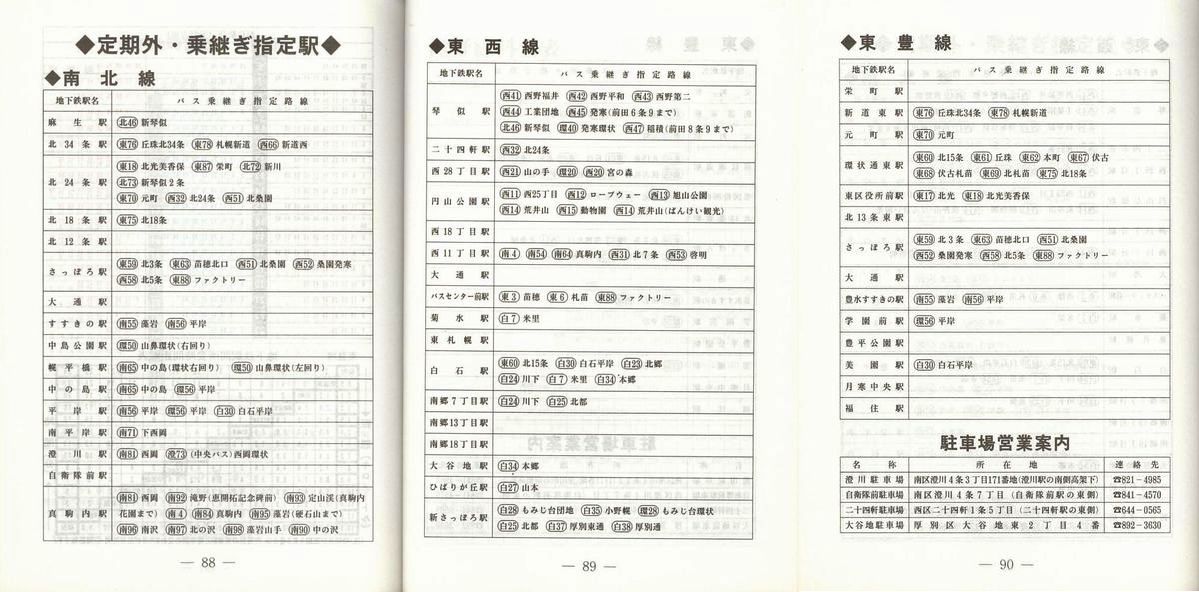 ◆定期外・乗継ぎ指定駅◆
◆南北線
地下鉄駅名 バス乗継ぎ指定路線
麻生駅 北46 新琴似
北34条駅 東76 丘珠北34条 東78 札幌新道 西66 新道西
北24条駅 東18 北光美香保 東87 栄町 北72 新川
北73 新琴似2条
東70 元町 西32 北24条 西51 北桑園
北18条駅 東75 北18条
北12条駅
さっぽろ駅 東59 北3条 東63 苗穂北口 西51 北桑園 西52 桑園発寒
西58 北5条 東88 ファクトリー
大通駅
すすきの駅 南55 藻岩 南56 平岸
中島公園駅 環50 山鼻環状(右回り)
幌平橋駅 南65 中の島(環状右回り) 環50 山鼻環状(左回り)
中の島駅 南65 中の島 環56 平岸
平岸駅 南56 平岸 環56 平岸 白30 白石平岸
南平岸駅 南71 下西岡
澄川駅 南81 西岡 澄73 (中央バス)西岡環状
自衛隊前駅
真駒内駅 南81 西岡 南92 滝野(恵開拓記念碑前) 南93 定山渓(真駒内
花園まで) 南4 南84 真駒内 南95 藻岩(硬石山まで)
南96 南沢 南97 北の沢 南98 藻岩山手 南90 中の沢
― 88 ―
◆東西線
地下鉄駅名 バス乗継ぎ指定路線
琴似駅 西41 西野福井 西42 西野平和 西43 西野第二
西44 工業団地 西45 発寒(前田6条9まで)
北46 新琴似 環40 発寒環状 西47 稲積(前田8条9まで)
二十四軒駅 西32 北24条
西28丁目駅 西21 山の手 環20 西20 宮の森
円山公園駅 西11 西25丁目 西12 ロープウェー 西13 旭山公園
西14 荒井山 西15 動物園 西14 荒井山(ばんけい観光)
西18丁目駅
西11丁目駅 南4 南54 南64 真駒内 西31 北7条 西53 啓明
大通駅
バスセンター前駅 東3 苗穂 東6 札苗 東88 ファクトリー
菊水駅 白7 米里
東札幌駅
白石駅 東60 北15条 白30 白石平岸 白23 北郷
白24 川下 白7 米里 白34 本郷
南郷7丁目駅 白24 川下 白25 北都
南郷13丁目駅
南郷18丁目駅
大谷地駅 白34 本郷
ひばりが丘駅 白27 山本
新さっぽろ駅 白28 もみじ台団地 白35 小野幌 環28 もみじ台環状
白25 北都 白37 厚別東通 白38 厚別通
― 89 ―
◆東豊線
地下鉄駅名 バス乗継ぎ指定路線
栄町駅
新道東駅 東76 丘珠北34条 東78 札幌新道
元町駅 東70 元町
環状通東駅 東60 北15条 東61 丘珠 東62 本町 東67 伏古
東68 伏古札苗 東69 北札苗 東75 北18条
東区役所前駅 東17 北光 東18 北光美香保
北13条東駅
さっぽろ駅 東59 北3条 東63 苗穂北口 西51 北桑園
西52 桑園発寒 西58 北5条 東88 ファクトリー
大通駅
豊水すすきの駅 南55 藻岩 南56 平岸
学園前駅 環56 平岸
豊平公園駅
美園駅 白30 白石平岸
月寒中央駅
福住駅
駐車場営業案内
名称 所在地 連絡先
澄川駐車場 南区澄川4条3丁目171番地(澄川駅の南側高架下) ☎821-4985
自衛隊前駐車場 南区澄川4条7丁目(自衛隊前駅の東側) ☎841-4570
二十四軒駐車場 西区二十四軒1条5丁目(二十四軒駅の東側) ☎644-0565
大谷地駐車場 厚別区大谷地東2丁目4番 ☎892-3630
― 90 ―